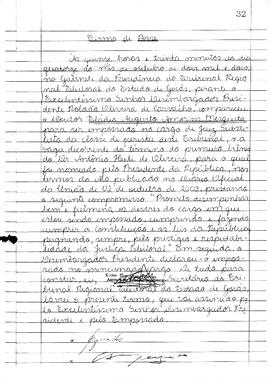 32
Termo de Posse
Às quinze horas e trinta minutos do dia
quatorze do mês de outubro de dois mil e dois,
no Gabinete da Presidência do Tribunal Regio
nal Eleitoral do Estado de Goiás, perante o
Excelentíssimo Senhor Desembargador Presi
dente Roldão Oliveira de Carvalho, compareceu
o Doutor Eládio Augusto Amorim Mesquita,
para ser empossado no cargo de Juiz Substi
tuto da classe de jurista deste Tribunal, na
vaga decorrente do término do primeiro biênio
do Dr. Antônio Heli de Oliveira, para o qual
foi nomeado pelo Presidente da República, nos
termos do Ato publicado no Diário Oficial
da União de 02 de outubro de 2002, prestando
o seguinte compromisso: "Prometo desempenhar
bem e fielmente os deveres do cargo em que
estou sendo empossado, cumprindo e fazendo
cumprir a Constituição e as leis da República,
pugnando sempre pelo prestígio e respeitabi
lidade da Justiça Eleitoral". Em seguida, o
Desembargador Presidente declarou-o empos
sado no mencionado cargo. De tudo para
constar, eu, Secretário do Tri
bunal Regional Eleitoral do Estado de Goiás,
lavrei o presente termo, que vai assinado pe
lo Excelentíssimo Senhor Desembargador Pre
sidente e pelo Empossado.